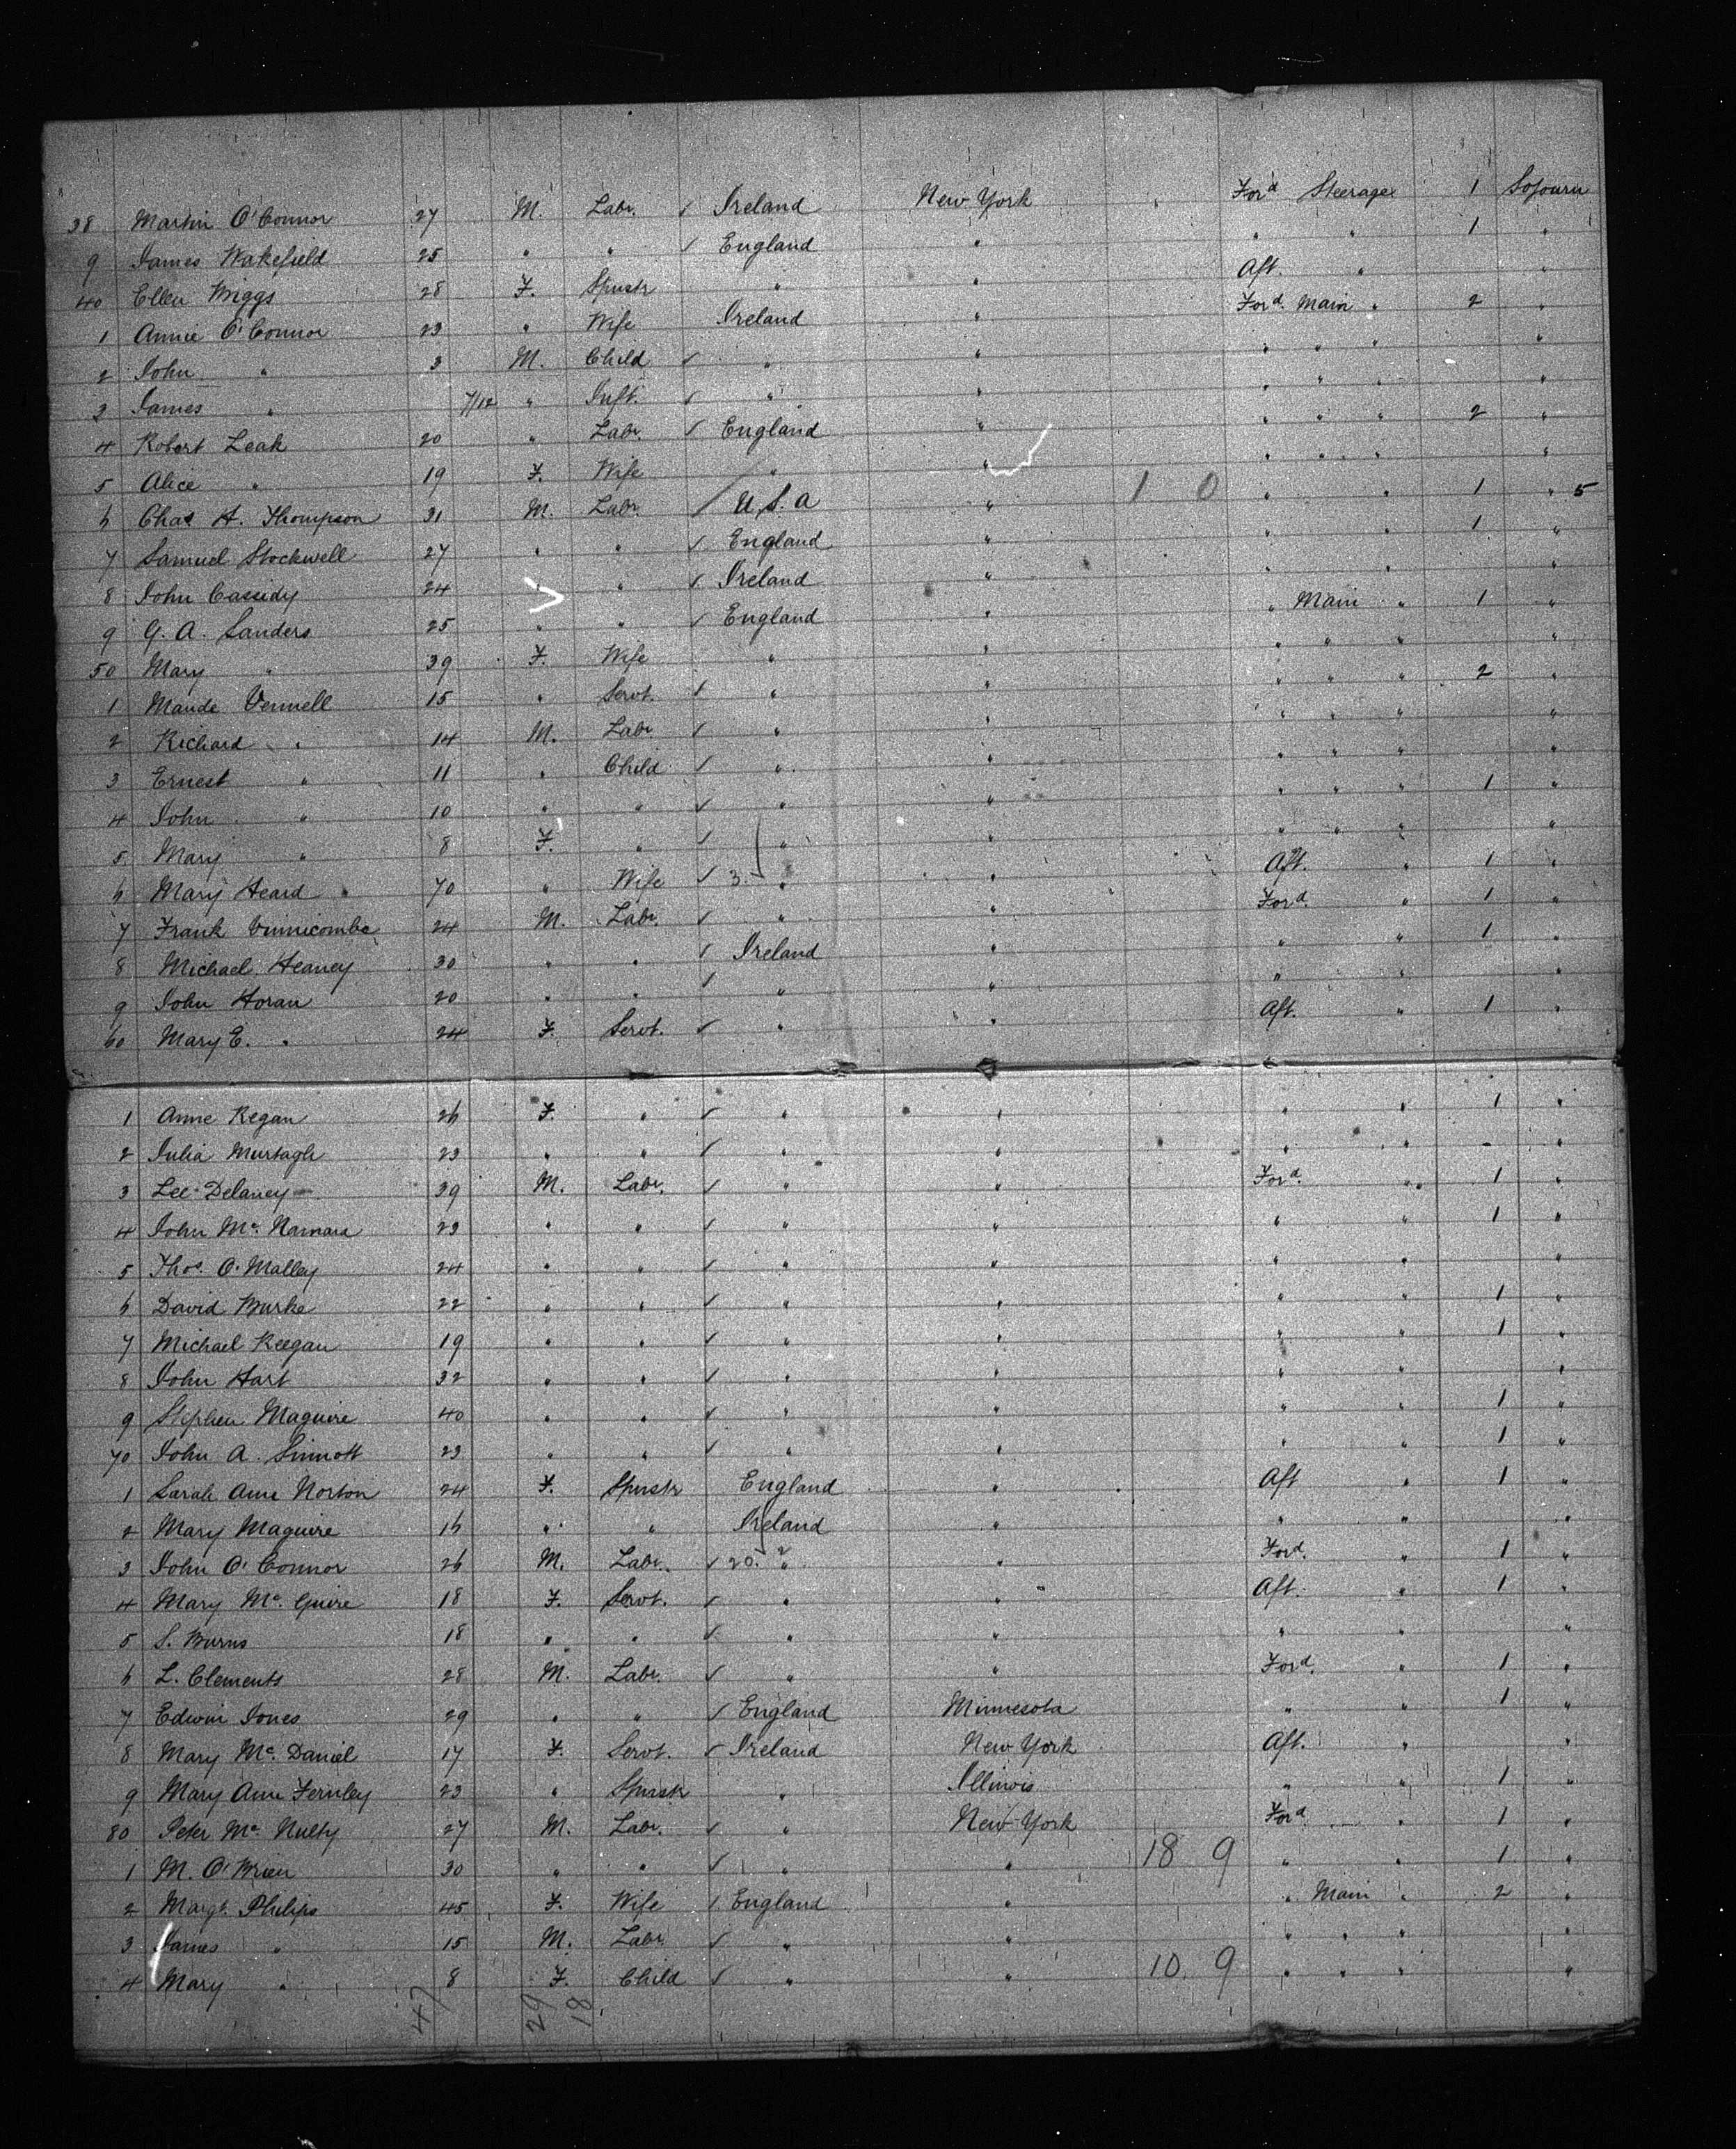 38 Martin O'Connor 27 M. Labr. ✓ Ireland New York Ford Steerage 1 Sojourn
9 James Wakefield 25 " " ✓ England " " " 1 "
40 Ellen Briggs 28 F. Spnstr " " Aft. " "
1 Annie O'Connor 23 " Wife Ireland " Ford. Main " 2 "
2 John " 3 M. Child ✓ " " " " " "
3 James " 7/12 " Inft. ✓ " " " " " "
4 Robert Leak 20 " Labr. ✓ England " " " " 2 "
5 Alice " 19 F. Wife " " " " " "
6 Chas. H. Thompson 31 M. Labr. ✓ U.S.A " 1 0 " " 1 " 5
7 Samuel Stockwell 27 " " ✓ England " " " 1 "
8 John Cassidy 24 " " ✓ Ireland " " " "
9 G. A. Sanders 25 " " ✓ England " " Main " 1 "
50 Mary " 39 F. Wife " " " " " "
1 Maude Vennell 15 " Servt. ✓ " " " " " 2 "
2 Richard " 14 M. Labr ✓ " " " " " "
3 Ernest " 11 " Child ✓ " " " " " "
4 John " 10 " " ✓ " " " " " 1 "
5 Mary " 8 F. " ✓ " " " " " "
6 Mary Heard " 70 " Wife ✓ 3. " " Aft. " 1 "
7 Frank Vinnicombe 24 M. Labr. ✓ " " Ford. " 1 "
8 Michael Heaney 30 " " ✓ Ireland " " " 1 "
9 John Horan 20 " " ✓ " " " " "
60 Mary E. " 24 F. Servt. ✓ " " Aft. " 1 "
1 Anne Regan 26 F. " ✓ " " " " 1 "
2 Julia Murtagh 23 " " ✓ " " " " - "
3 Lee Delaney 39 M. Labr. ✓ " " Ford. " 1 "
4 John Mc. Namara 23 " " ✓ " " " " 1 "
5 Thos. O'Malley 24 " " ✓ " " " " "
6 David Burke 22 " " ✓ " " " " 1 "
7 Michael Keegan 19 " " ✓ " " " " 1 "
8 John Hart 32 " " ✓ " " " " "
9 Stephen Maguire 40 " " ✓ " " " " 1 "
70 John A. Sinnott 23 " " ✓ " " " " 1 "
1 Sarah Ann Norton 24 F. Spnstr England " Aft " 1 "
2 Mary Maguire 16 " " Ireland " " " "
3 John O'Connor 26 M. Labr. ✓ 20. " " Ford. " 1 "
4 Mary Mc. Guire 18 F. Servt. ✓ " " Aft. " 1 "
5 S. Burns 18 " " ✓ " " " " "
6 L. Clements 28 M. Labr. ✓ " " Ford. " 1 "
7 Edwin Jones 29 " " ✓ England Minnesota " " 1 "
8 Mary Mc. Daniel 17 F. Servt. ✓ Ireland New York Aft. " "
9 Mary Ann Fernley 23 " Spnstr " Illinois " " 1 "
80 Peter Mc. Nulty 27 M. Labr. ✓ " New York Ford. " 1 "
1 M. O'Brien 30 " " ✓ " " 18 9 " " 1 "
2 Margt. Philips 45 F. Wife ✓ England " " Main " 2 "
3 James " 15 M. Labr ✓ " " " " " "
4 Mary " 8 F. Child ✓ " " 10 9 " " " "
47 29 18